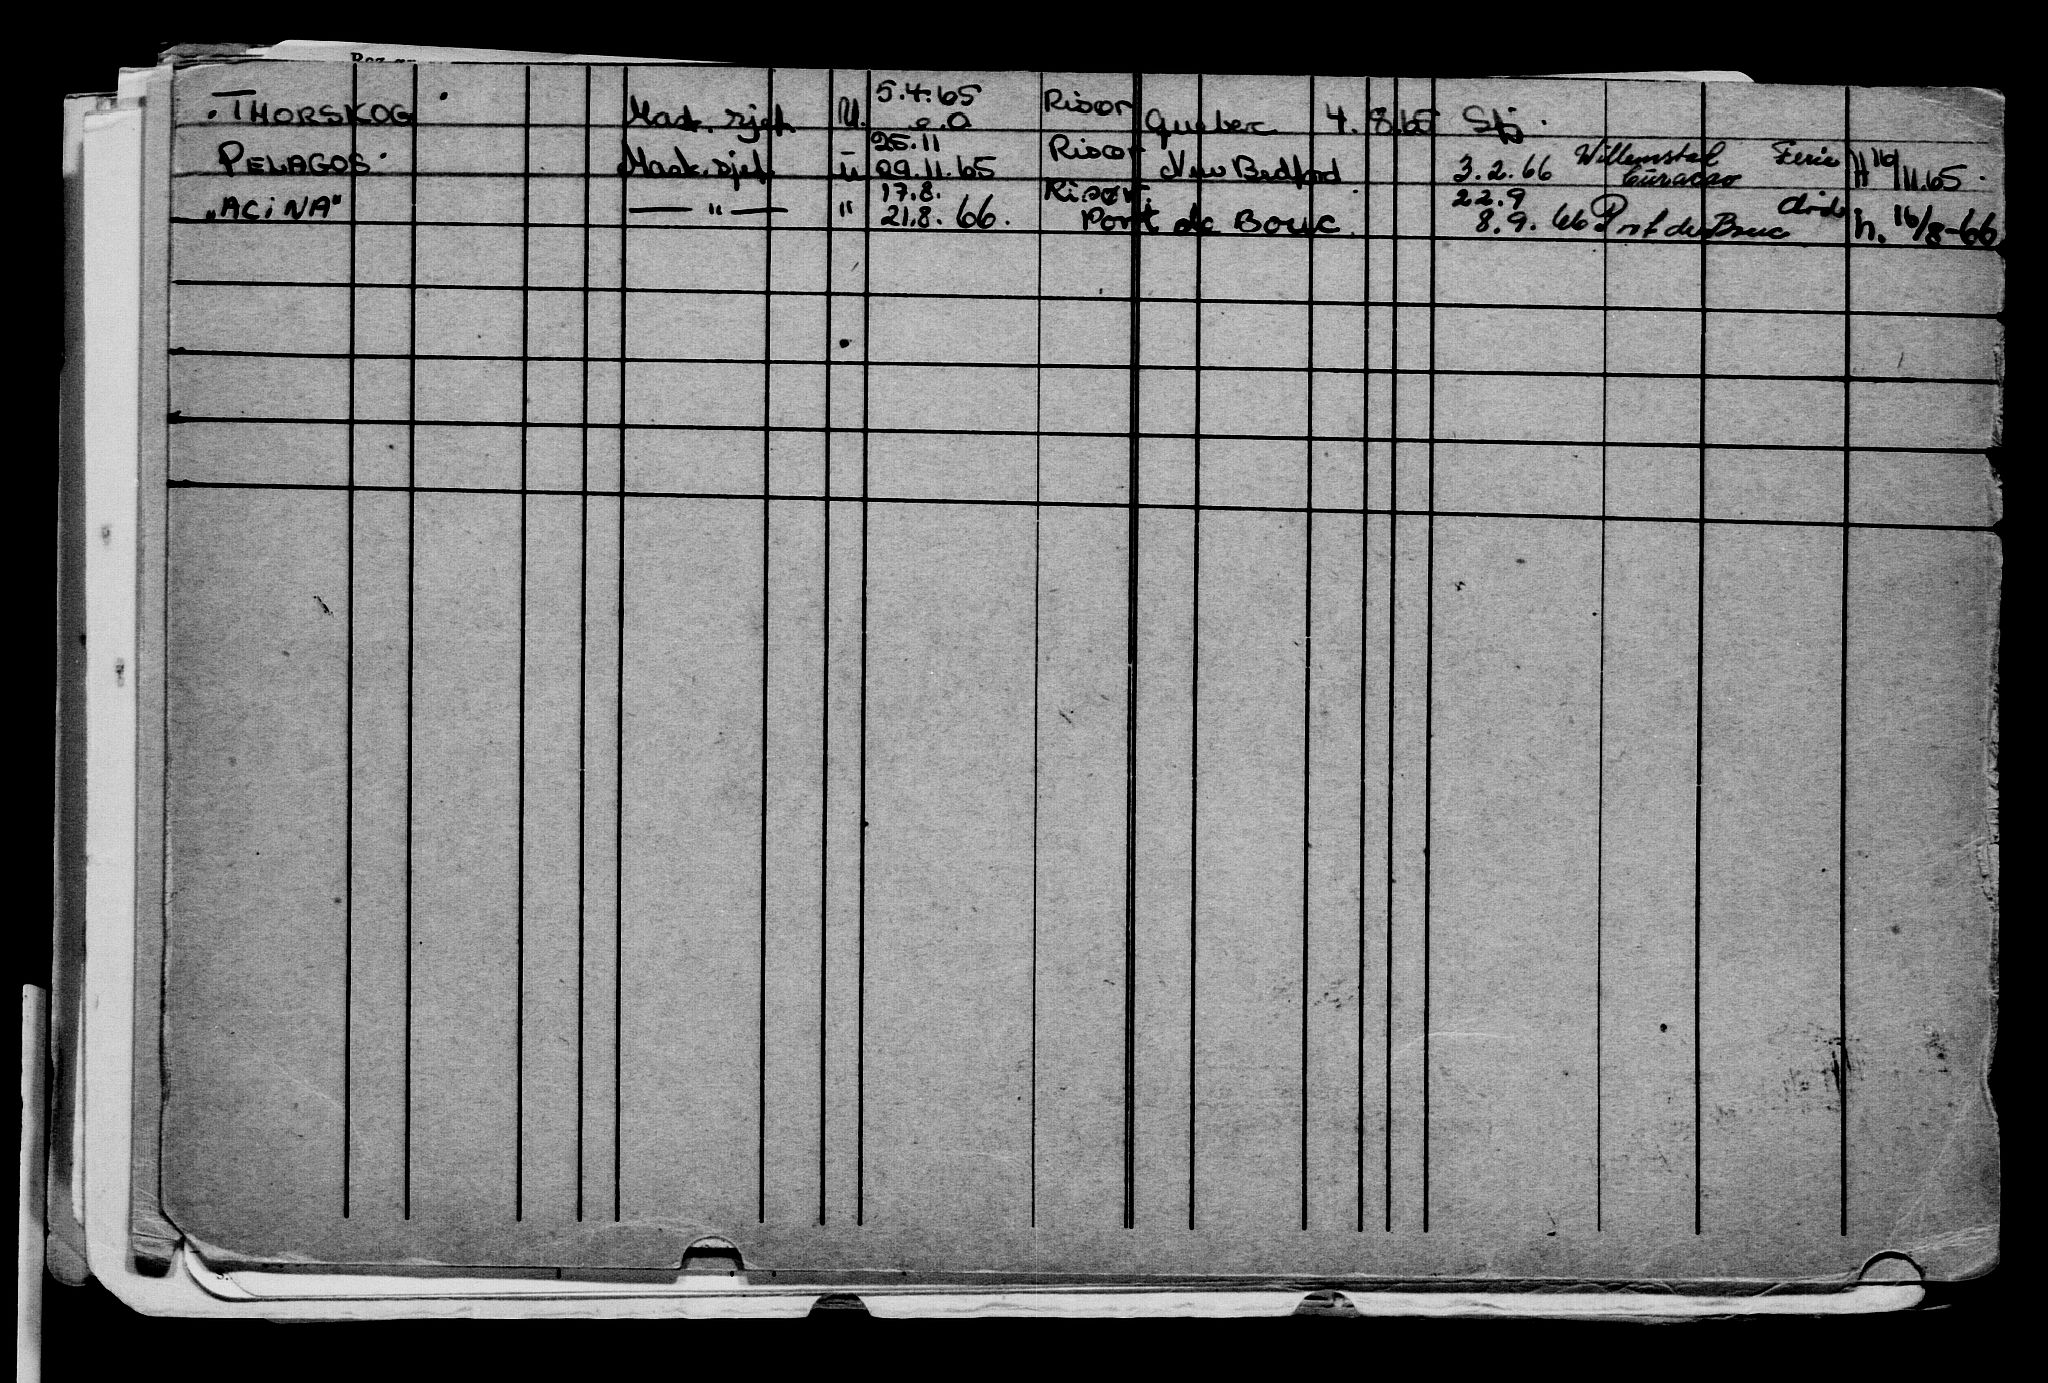 THORSKOG Mask. sjef. U. 5.4.65 Risør Quebec 4. 8. 65 Stj.
PELAGOS Mask. sjef. u 25.11 29.11.65 Risør New Bedford 3.2.66 Willemstad Curacao Ferie H 16/11.65.
"ACINA" — " — " 17.8. 21.8. 66. Risør. Port de Bouc. 22.9 8.9. 66 Port de Bouc h. 16/8-66